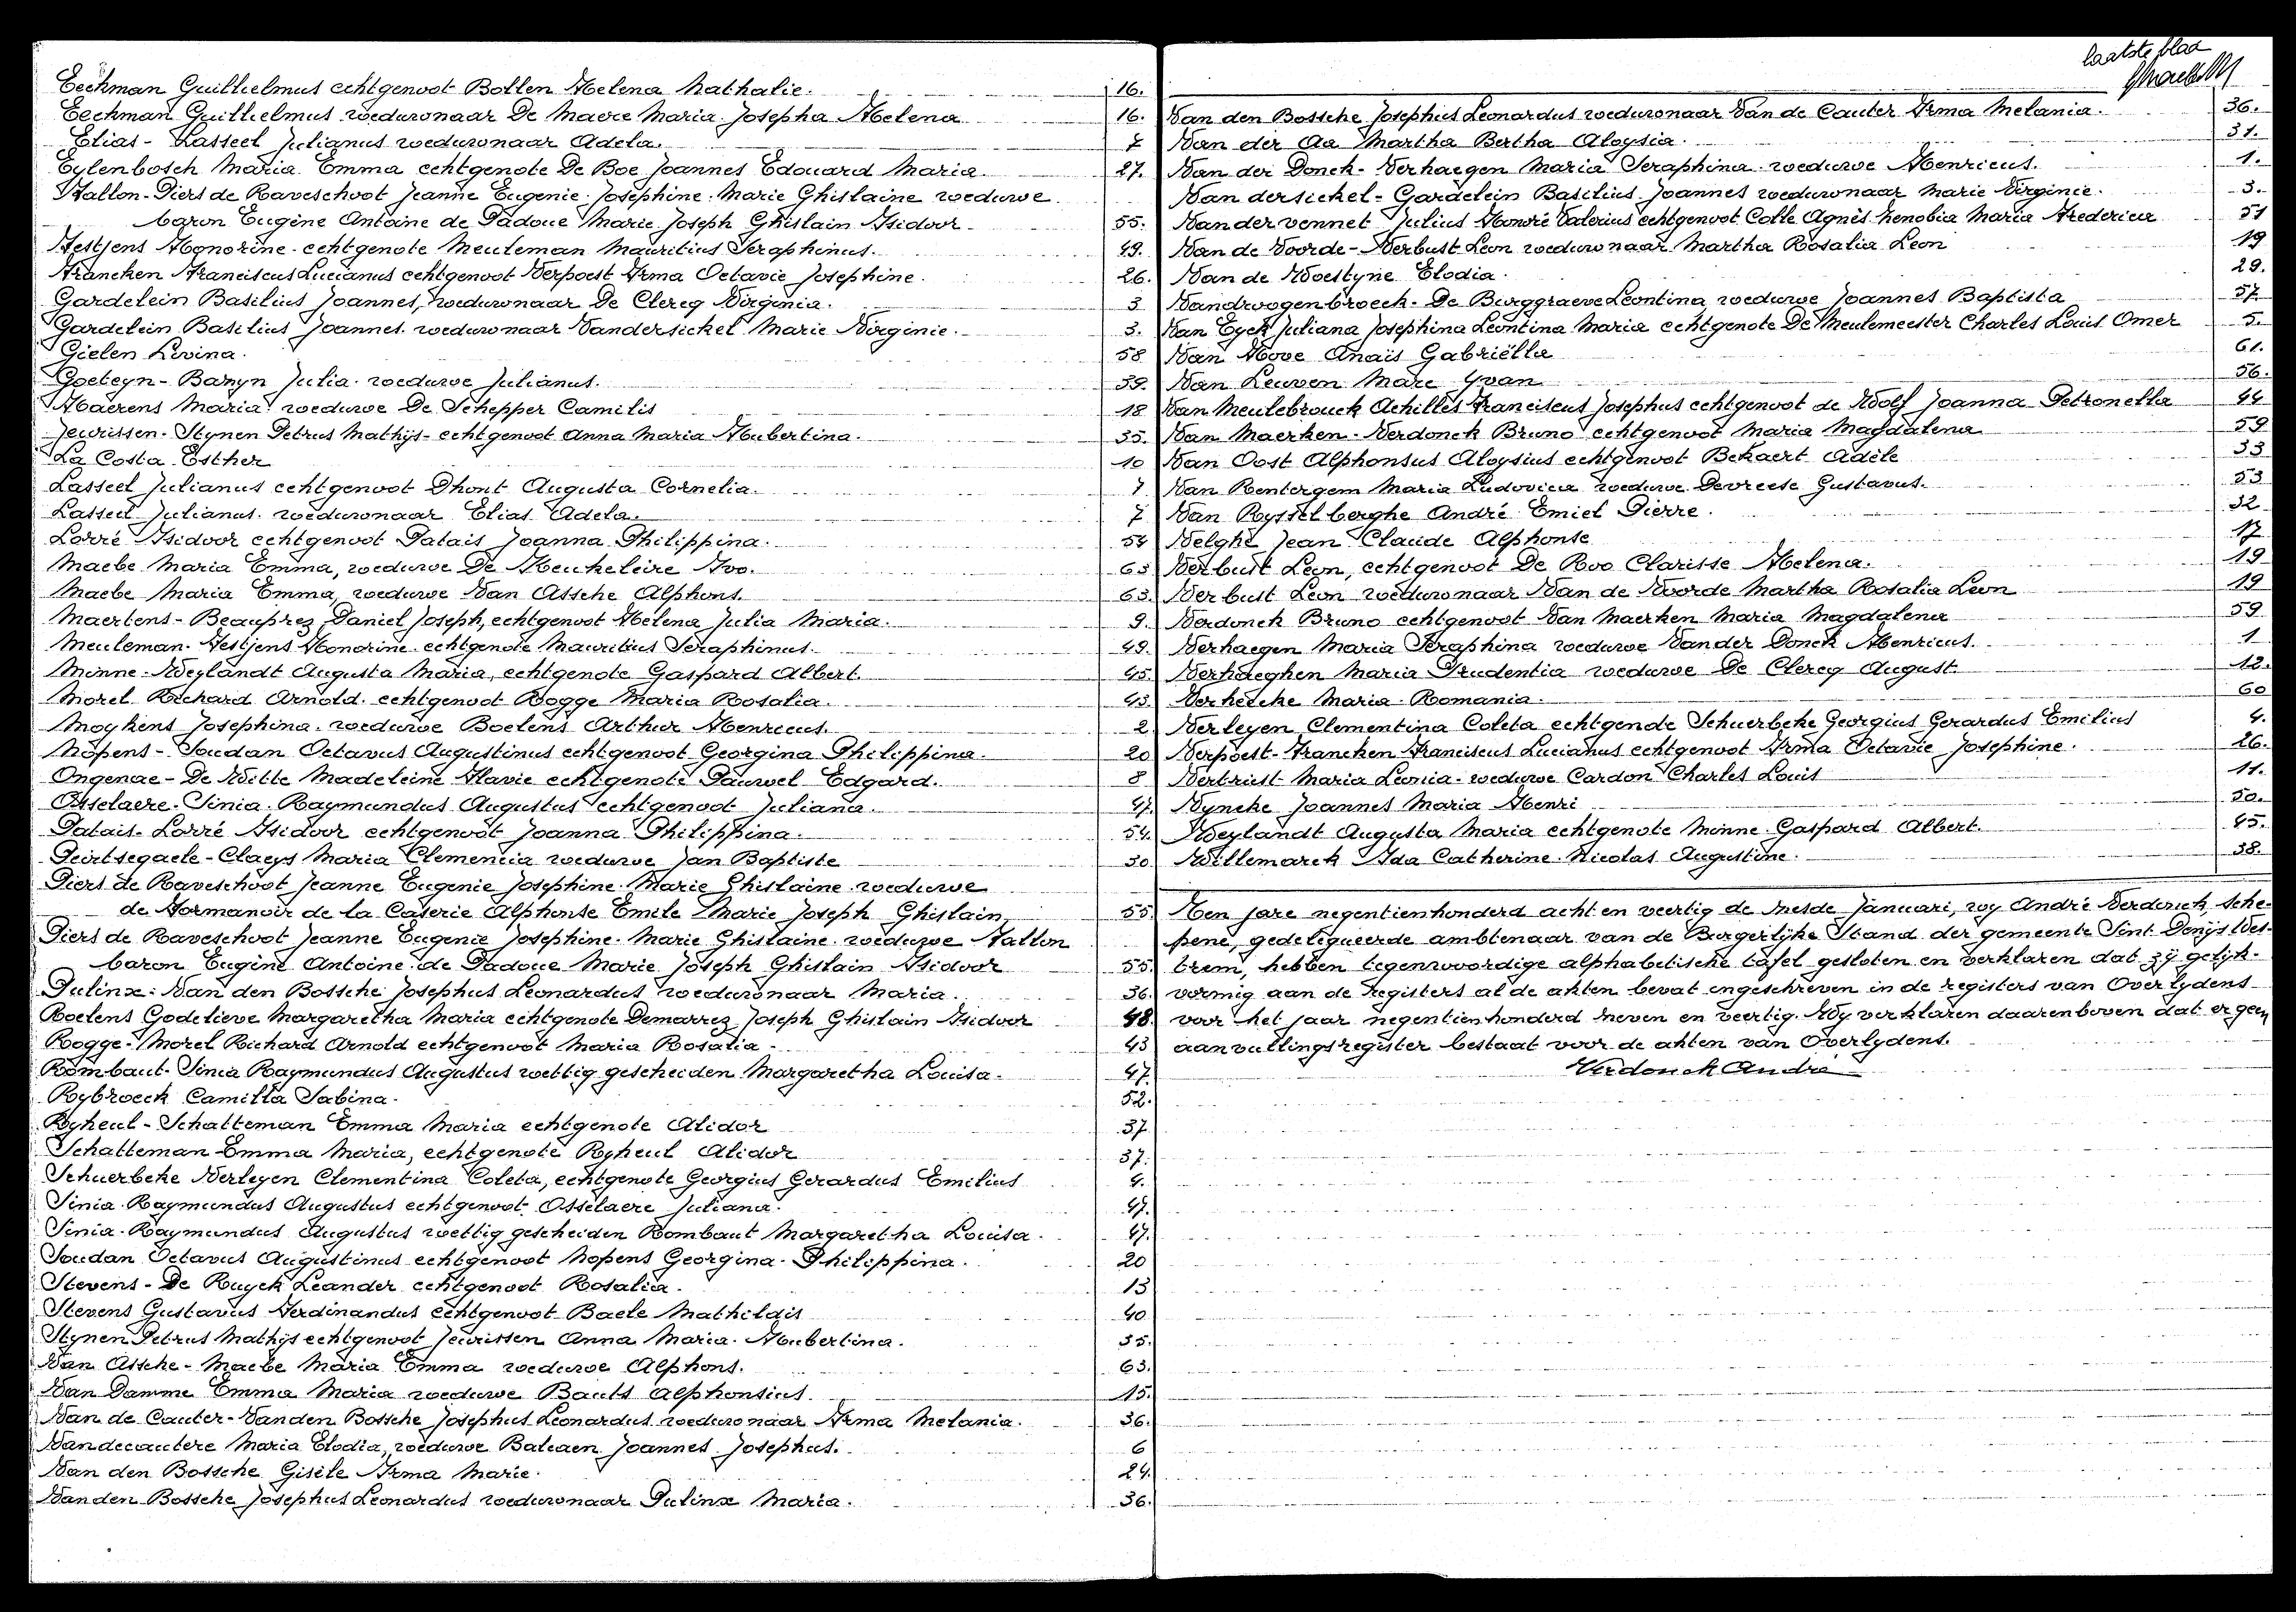 Eeckman Guilhelmus echtgenoot Bollen Helena Nathalie. 16.
Eeckman Guilhelmus weduwnaar De Maere Maria Josepha Helena 16.
Elias - Lasseel Julianus weduwnaar Adela. 7
Eylenbosch Maria Emma echtgenote De Boe Joannes Edouard Maria. 27.
Fallon-Piers de Raveschoot Jeanne Eugenie Josephine Marie Ghislaine weduwe
baron Eugène Antoine de Padoue Marie Joseph Ghislain Isidoor. 55.
Festjens Honorine echtgenote Meuleman Mauritius Seraphinus. 49.
Francken Franciscus Lucianus echtgenoot Verpoest Irma Octavie Josephine. 26.
Gardelein Basilius Joannes, weduwnaar De Clercq Virginia. 3
Gardelein Basilius Joannes weduwnaar Vandersickel Marie Virginie. 3.
Gielen Levina. 58
Goeteyn - Baryn Julia weduwe Julianus. 39.
Haerens Maria weduwe De Schepper Camilis 18
Jeurissen - Stynen Petrus Mathijs echtgenoot Anna Maria Hubertina. 35.
La Costa Esther 10
Lasseel Julianus echtgenoot Dhont Augusta Cornelia. 7
Lasseel Julianus weduwnaar Elias Adela. 7
Lorré Isidoor echtgenoot Palais Joanna Philippina. 54
Maebe Maria Emma, weduwe De Keukeleire Ivo. 63
Maebe Maria Emma, weduwe Van Assche Alphons. 63.
Maertens - Beauprez Daniel Joseph, echtgenoot Helena Julia Maria. 9.
Meuleman - Festjens Honorine echtgenote Mauritius Seraphinus. 49.
Minne - Weylandt Augusta Maria, echtgenote Gaspard Albert. 45.
Morel Richard Arnold echtgenoot Rogge Maria Rosalia. 43.
Moykens Josephina weduwe Boelens Arthur Henricus. 2.
Nopens - Soudan Octavus Augustinus echtgenoot Georgina Philippina. 20
Ongenae - De Witte Madeleine Flavie echtgenote Pauwel Edgard. 8
Osselaere - Sinia Raymundus Augustus echtgenoot Juliana. 47.
Palais - Lorré Isidoor echtgenoot Joanna Philippina. 54.
Peirtsegaele - Claeys Maria Clemencia weduwe Jan Baptiste 30
Piers de Raveschoot Jeanne Eugenie Josephine Marie Ghislaine weduwe
de Formanoir de la Caserie Alphonse Emile Marie Joseph Ghislain, 55.
Piers de Raveschoot Jeanne Eugenie Josephine Marie Ghislaine weduwe Fallon
baron Eugène Antoine de Padoue Marie Joseph Ghislain Isidoor 55.
Pulinx - Van den Bossche Josephus Leonardus weduwnaar Maria. 36.
Roelens Godelieve Margaretha Maria echtgenote Demarrez Joseph Ghislain Isidoor 48.
Rogge - Morel Richard Arnold echtgenoot Maria Rosalia. 43
Rombaut - Sinia Raymundus Augustus wettig gescheiden Margaretha Louisa. 47.
Rybroeck Camilla Sabina. 52.
Ryheul - Schatteman Emma Maria echtgenote Alidor 37
Schatteman Emma Maria, echtgenote Ryheul Alidor 37.
Schuerbeke Verleyen Clementina Coleta, echtgenote Georgius Gerardus Emilius 4.
Sinia Raymundus Augustus echtgenoot Osselaere Juliana. 47.
Sinia Raymundus Augustus wettig gescheiden Rombaut Margaretha Louisa. 47.
Soudan Octavus Augustinus echtgenoot Nopens Georgina Philippina. 20
Stevens - De Ruyck Leander echtgenoot Rosalia. 13
Stevens Gustavus Ferdinandus echtgenoot Baele Mathildis 40
Stynen Petrus Mathijs echtgenoot Jeurissen Anna Maria Hubertina. 35.
Van Assche - Maebe Maria Emma weduwe Alphons. 63.
Van Damme Emma Maria weduwe Bauts Alphonsius 15.
Van de Cauter - Vanden Bossche Josephus Leonardus weduwnaar Irma Melania. 36.
Vandecautere Maria Elodia, weduwe Balcaen Joannes Josephus. 6
Van den Bossche Gisèle Irma Marie. 24.
Vanden Bossche Josephus Leonardus weduwnaar Pulinx Maria. 36.
laatste blad
Van den Bossche Josephus Leonardus weduwnaar Van de Cauter Irma Melania. 36.
Van der Aa Martha Bertha Aloysia. 31.
Van der Donck - Verhaegen Maria Seraphina weduwe Henricus. 1.
Van dersickel - Gardelein Basilius Joannes weduwnaar Marie Virginie. 3.
Van der vennet Julius Honoré Valerius echtgenoot Colle Agnès Zenobia Maria Frederica 51
Van de Voorde - Verbust Leon weduwnaar Martha Rosalia Leon 19
Van de Woestyne Elodia. 29.
Vandroogenbroeck - De Burggraeve Leontina weduwe Joannes Baptista 57
Van Eyck Juliana Josephina Leontina Maria echtgenote De Meulemeester Charles Louis Omer 5.
Van Hove Anaïs Gabriëlla 61.
Van Leuven Marc Yvan 56.
Van Meulebrouck Achilles Franciscus Josephus echtgenoot de Wolf Joanna Petronella 44
Van Maerken - Verdonck Bruno echtgenoot Maria Magdalena 59
Van Oost Alphonsus Aloysius echtgenoot Bekaert Adèle 33
Van Rentergem Maria Ludovica weduwe Devreese Gustavus. 53
Van Rysselberghe André Emiel Pierre. 32
Velghe Jean Claude Alphonse 17
Verbust Leon, echtgenoot De Roo Clarisse Helena. 19
Verbust Leon weduwnaar Van de Voorde Martha Rosalia Leon 19
Verdonck Bruno echtgenoot Van Maerken Maria Magdalena 59
Verhaegen Maria Seraphina weduwe Vander Donck Henricus. 1
Verhaeghen Maria Prudentia weduwe De Clercq August 12.
Verhelcke Maria Romania. 60
Verleyen Clementina Coleta echtgende Schuerbeke Georgius Gerardus Emilius 4.
Verpoest - Francken Franciscus Lucianus echtgenoot Irma Octavie Josephine. 26.
Vertriest Maria Leonia weduwe Cardon Charles Louis 11.
Vyncke Joannes Maria Henri 50.
Weylandt Augusta Maria echtgenote Minne Gaspard Albert. 45.
Willemarck Ida Catherine Nicolas Augustine. 38.
Ten jare negentienhonderd acht en veertig de zesde Januari, wy André Verdonck, sche-
pene, gedelegueerde ambtenaar van de Burgerlijke Stand der gemeente Sint Denijs Wes-
trem, hebben tegenwoordige alphabetische tafel gesloten en verklaren dat zij gelijk-
vormig aan de registers al de akten bevat ingeschreven in de registers van Overlydens
voor het jaar negentienhonderd zeven en veertig. Wy verklaren daarenboven dat er geen
aanvullingsregister bestaat voor de akten van Overlydens.
Verdonck André